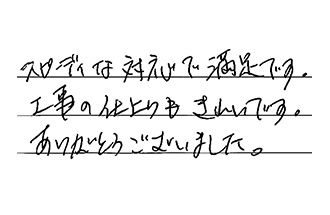 スピーディな対応で満足です。
工事の仕上りもきれいです。
ありがとうございました。